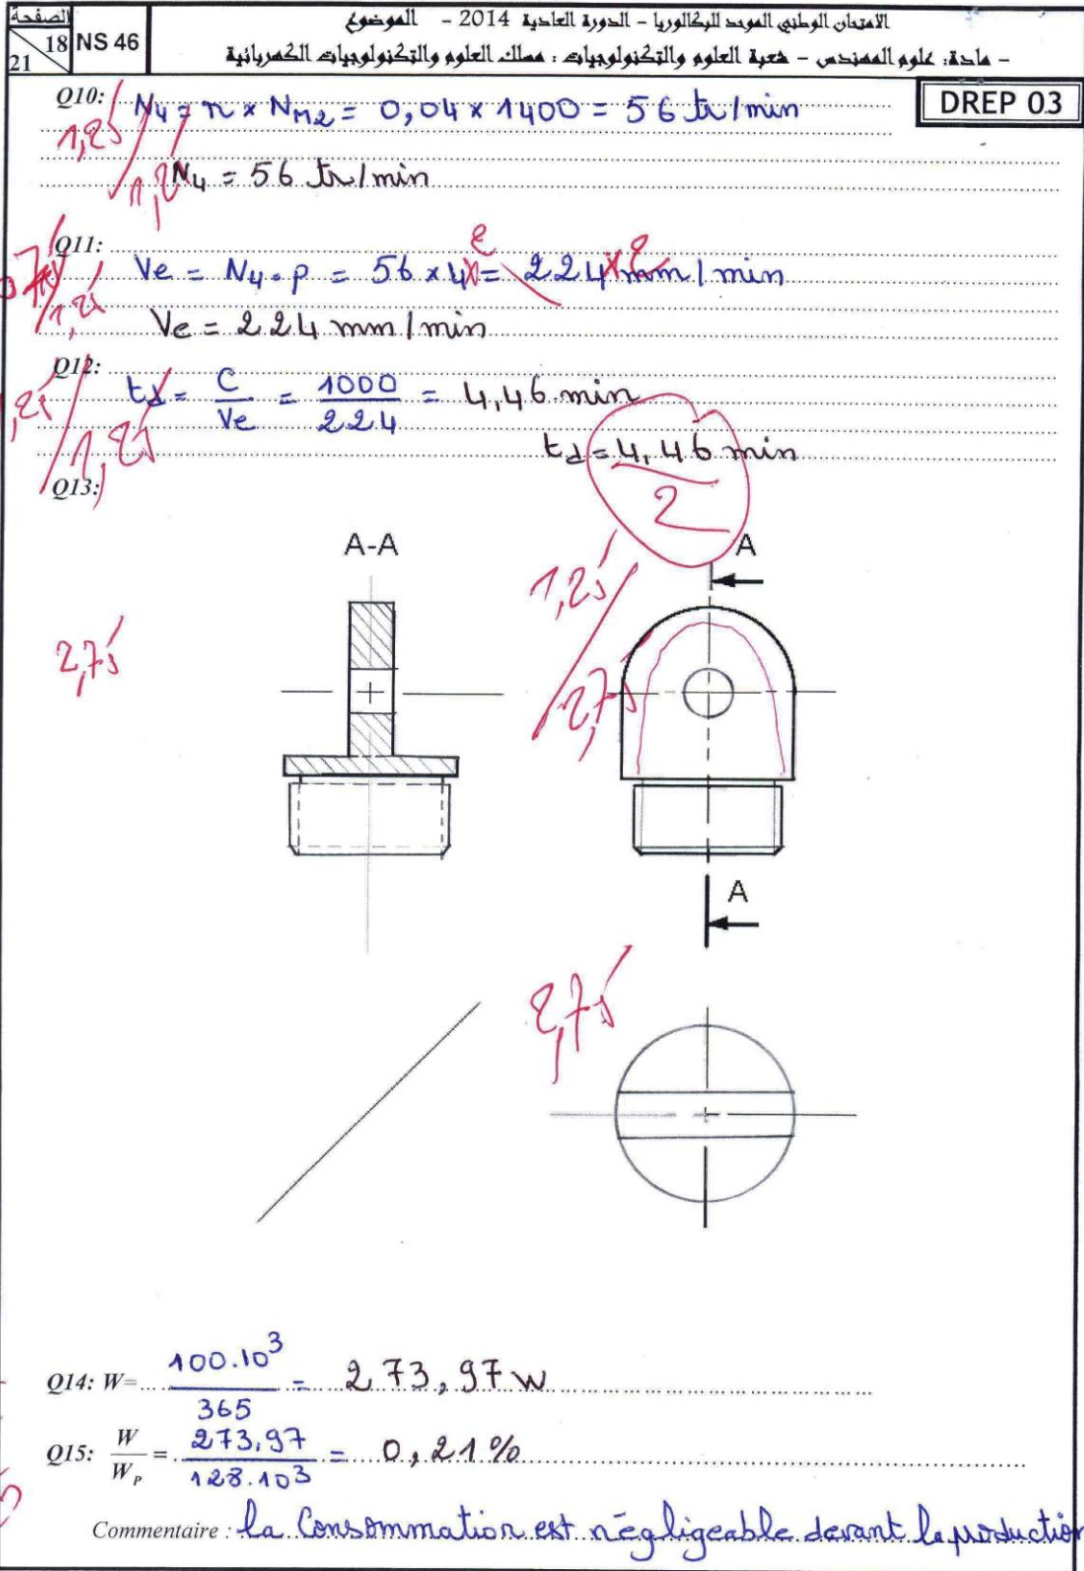 الصفحة
18
21
NS 46
الامتحان الوطني الموحد للبكالوريا - الدورة العادية 2014 - الموضوع
- مادة: علوم المهندس - شعبة العلوم والتكنولوجيات : مسلك العلوم والتكنولوجيات الكهربائية
DREP 03
Q10: N4 = r x NM2 = 0,04 x 1400 = 56 tr/min
1,25
N4 = 56 tr/min
1,25
Q11:
Ve = N4 . p = 56 x 4 x 2 = 224 x 2 mm/min
1,25
Ve = 224 mm/min
Q12:
td = C/Ve = 1000/224 = 4,46 min
1,25
td = 4,46 min
2
Q13:
A-A
A
1,25
2,75
2,75
A
2,75
Q14: W= 100.10³/365 = 273,97 W
Q15: W/WP = 273,97/128.10³ = 0,21%
Commentaire : la Consommation est négligeable devant la production